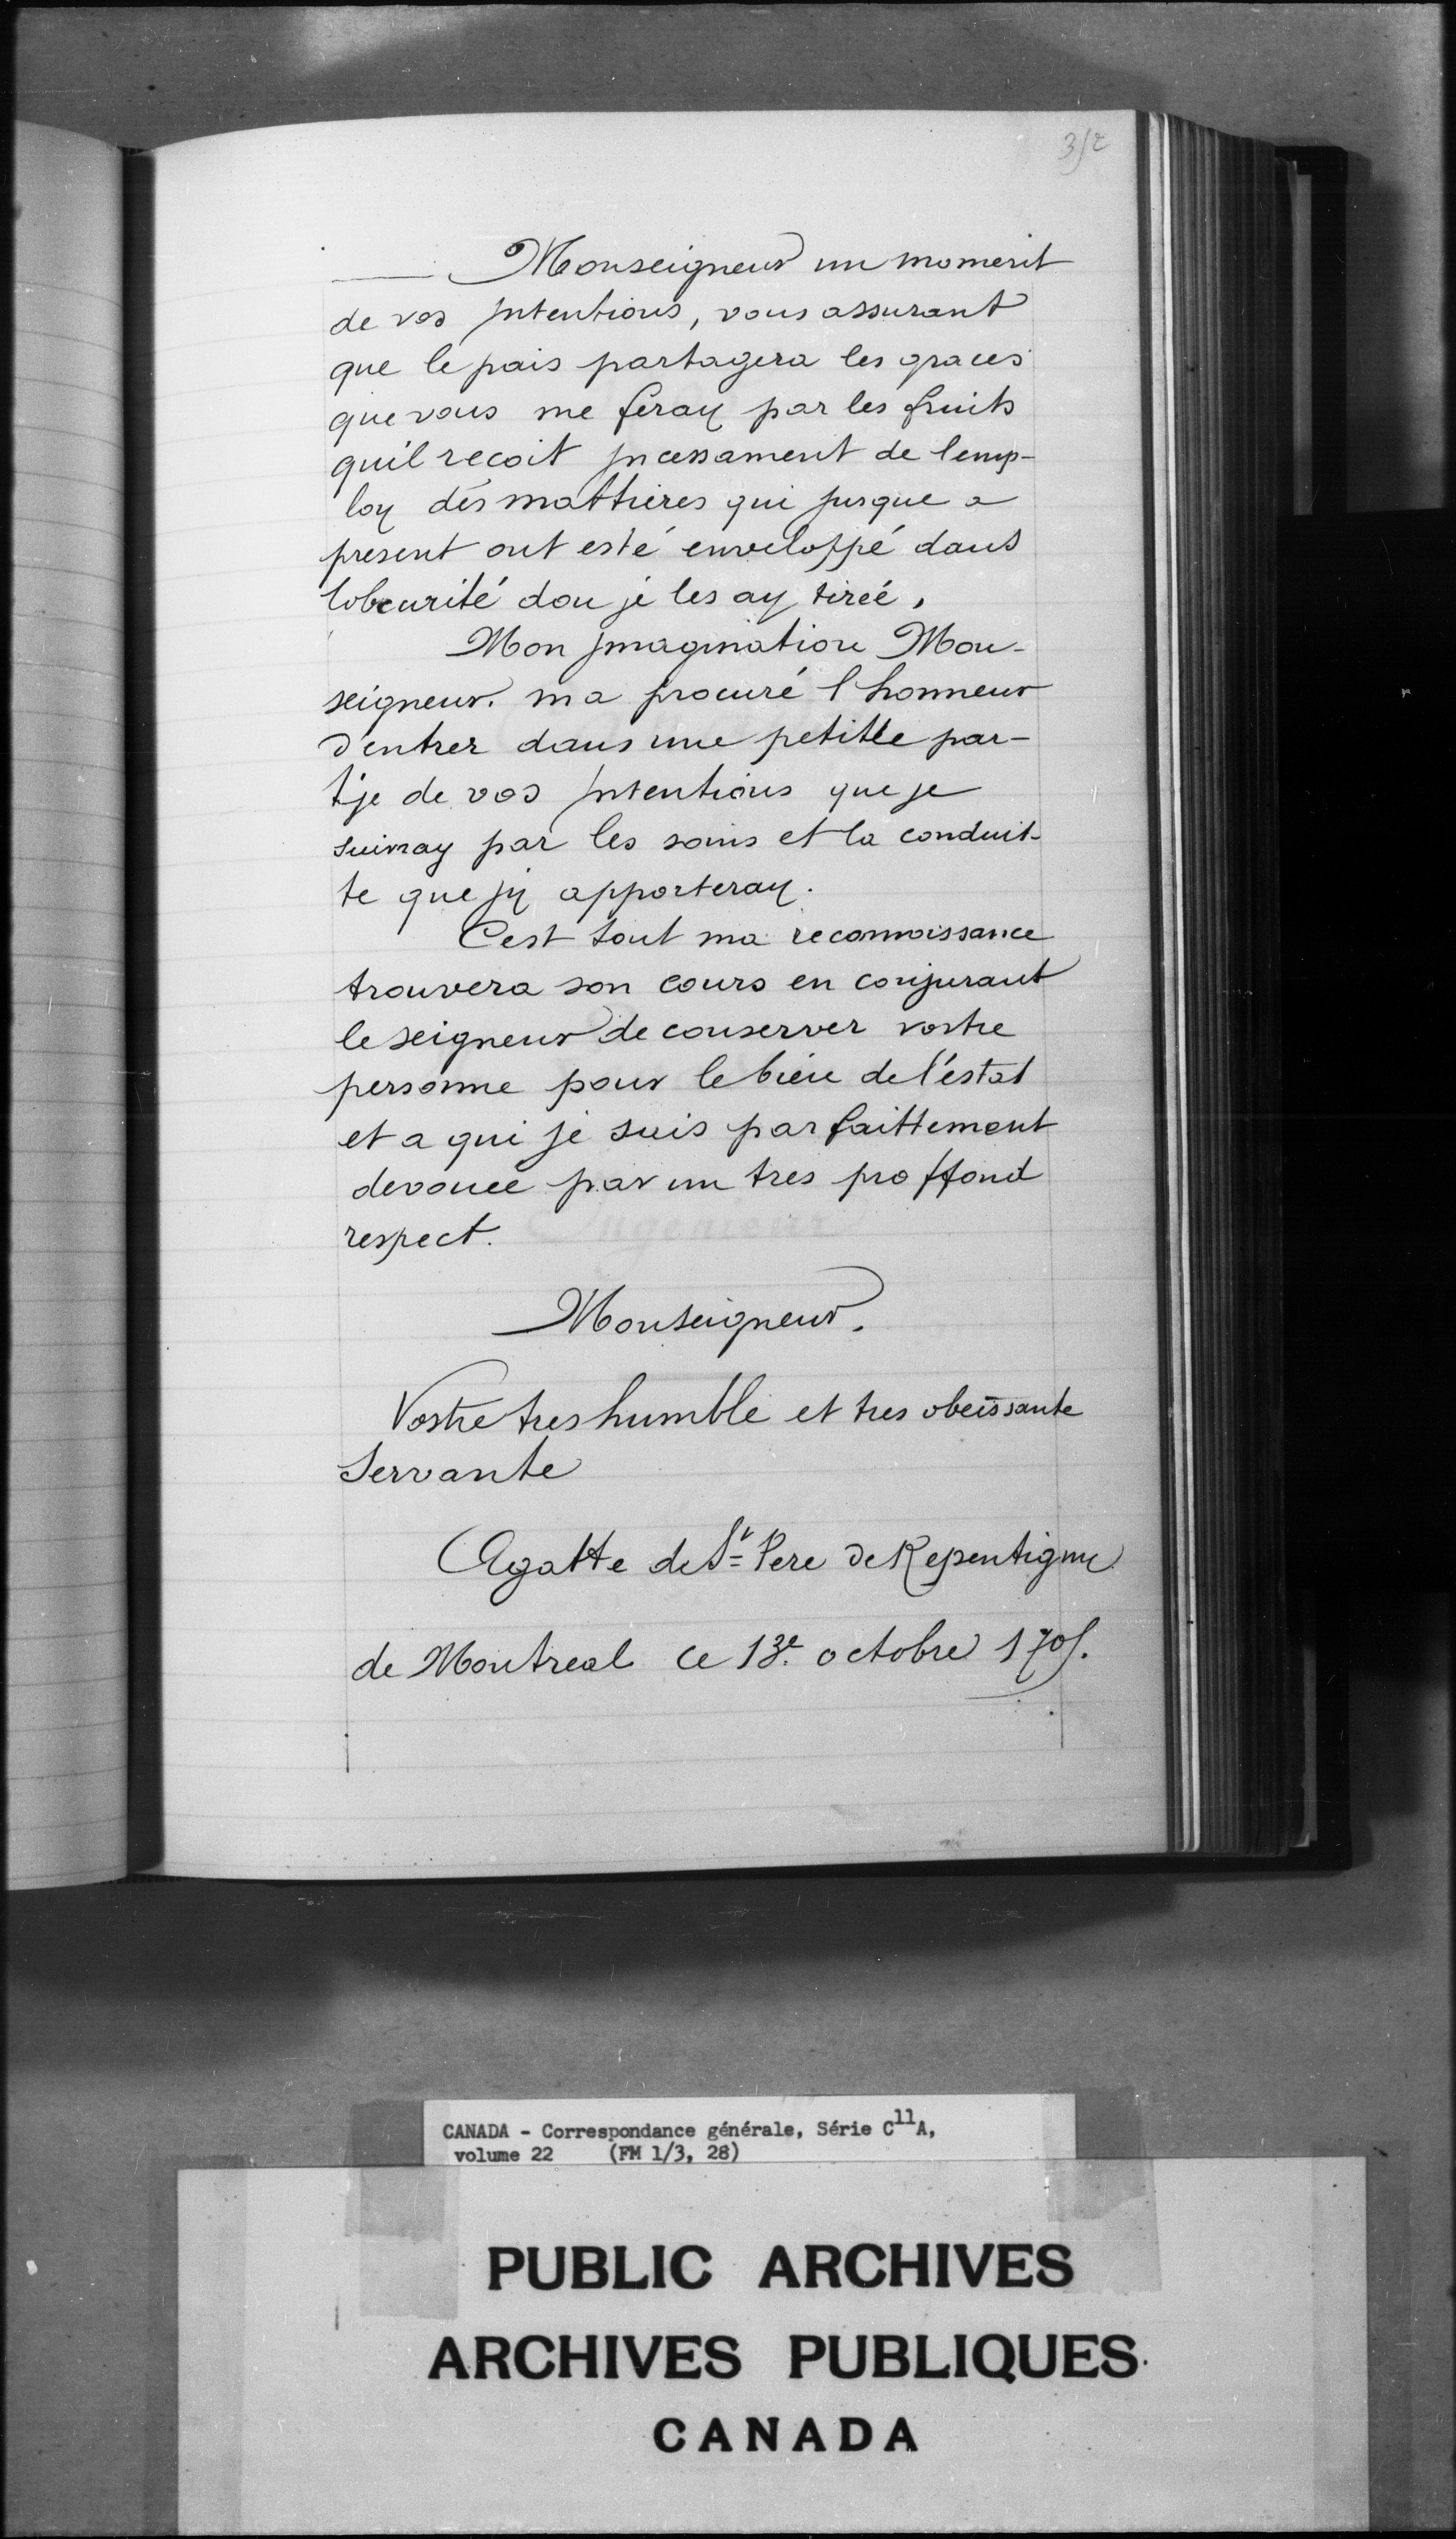 352
Monseigneur un moment
de vos jntentions, vous assurant
que le pais partagera les graces
que vous me feray par les fruits
quil recoit jncessament de lemp-
loy des mattieres qui jusque a
present ont esté enveloppé dans
lobcurité dou je les ay tireé,
Mon jmagination Mon-
seigneur. ma procuré l honneur
d'entrer dans une petitte par-
tje de vos jntentions que je
suivray par les soins et la conduit-
te que jy apporteray.
Cest tout ma reconnoissance
trouvera son cours en conjurant
le seigneur de conserver vostre
personne pour le bien de l'éstat
et a qui je suis parfaittement
devouee par un tres proffond
respect.
Monseigneur.
Vostre tres humble et tres obeissante
Servante
Agatte de St Pere de Repentigny
de Montreal ce 13e octobre 1705.
CANADA - Correspondance générale, Série C11A,
volume 22 (FM 1/3, 28)
PUBLIC ARCHIVES
ARCHIVES PUBLIQUES
CANADA